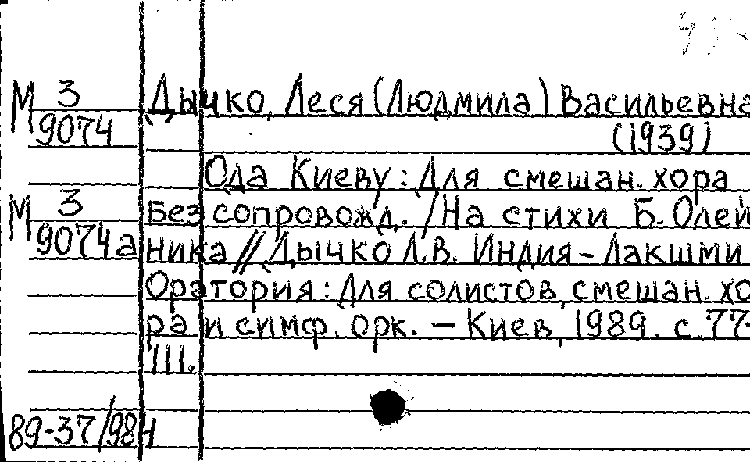 М 3 Дычко, Леся (Людмила) Васильевна
9074 (1939)
Ода Киеву: Для смешан. хора
М 3 без сопровожд. / На стихи Б. Олей
9074а ника // Дычко Л.В. Индия - Лакшми
Оратория: Для солистов, смешан. хо
ра и симф. орк. — Киев, 1989. с. 77-
111.
89-37/98н